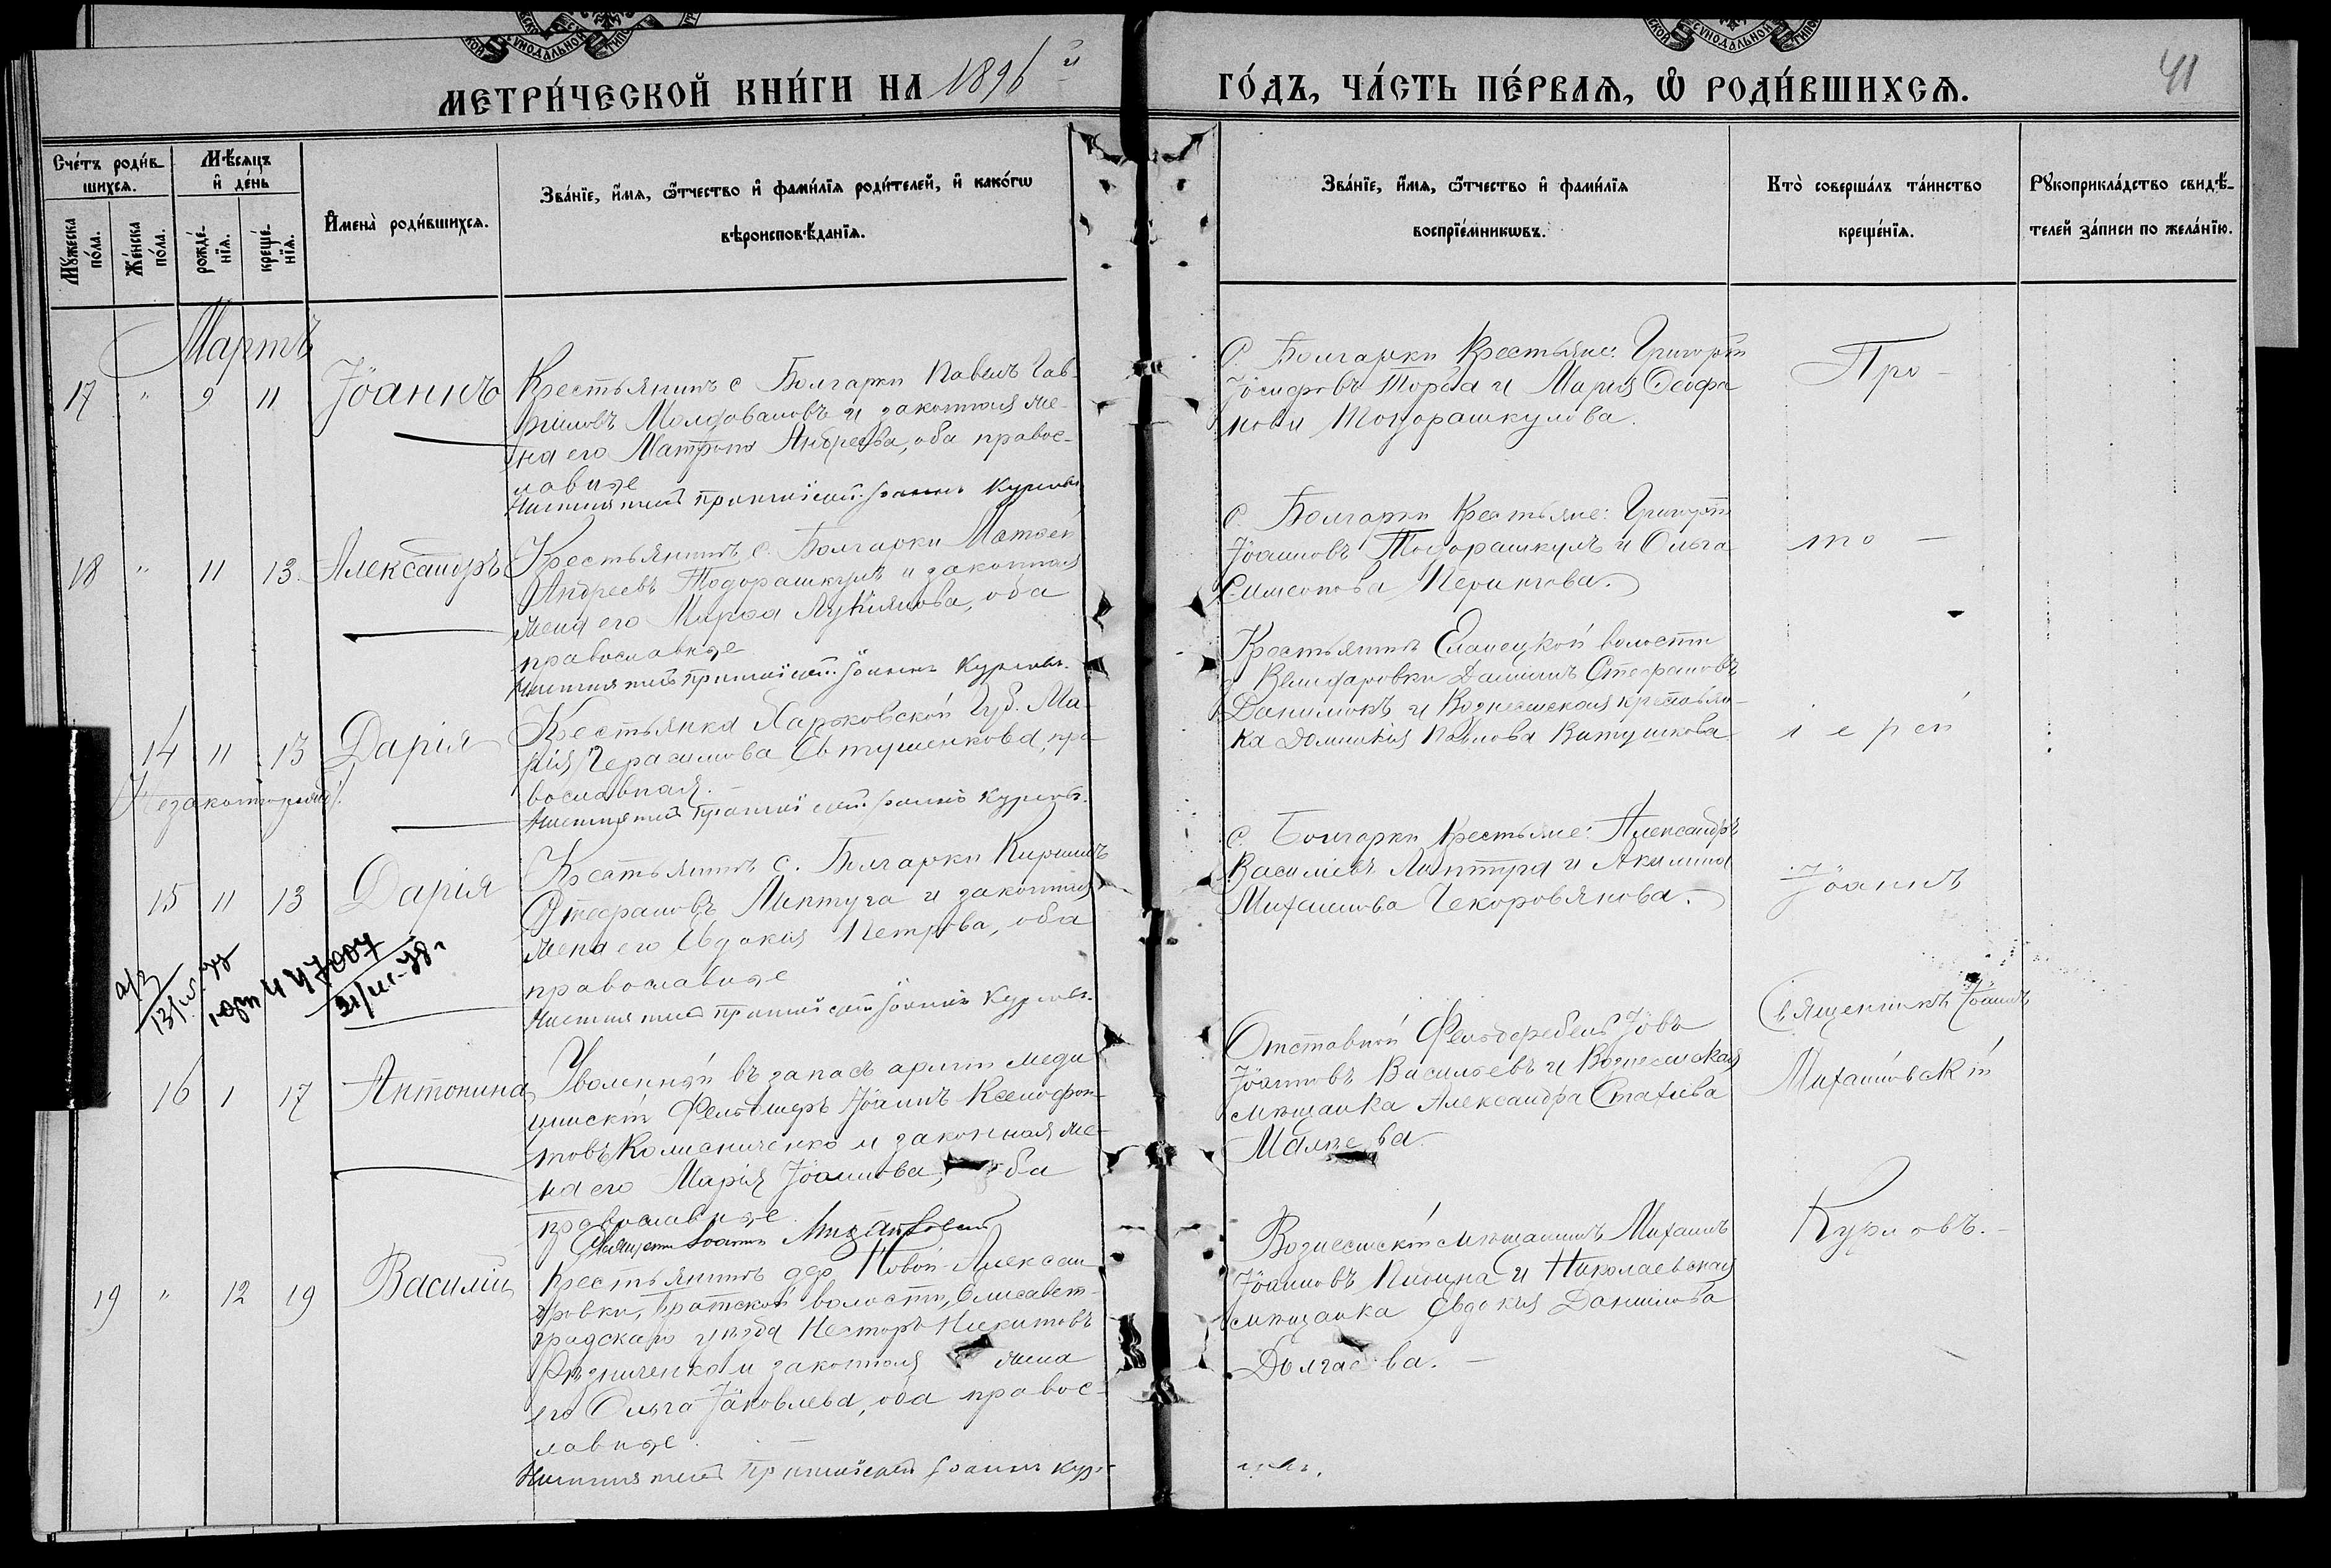 МЕТРИ́ЧЕСКОЙ КНИ́ГИ НА 1896 й
ГО́ДЪ, ЧА́СТЬ ПЕ́РВАѦ, Ѡ РОДИ́ВШИХСѦ.
41
Счетъ роди́в-
шихсѧ.
Мѣсѧцъ
и де́нь
Мꙋжеска
по́ла.
Же́нска
по́ла.
рожде́-
нїѧ.
креще́-
нїѧ.
Имена̀ роди́вшихсѧ.
Зва́нїе, и́мѧ, ѻ́тчество и фами́лїѧ роди́телей, и како́гѡ
вѣроисповѣданїѧ.
Зва́нїе, и́мѧ, ѻ́тчество и фами́лїѧ
воспрїе́мникѡвъ.
Кто̀ соверша́лъ та́инство
креще́нїѧ.
Рꙋкоприкла́дство свидѣ́-
телей за́писи по жела́нїю.
Мартъ
17 " 9 11 Іоаннъ
Крестьянинъ с Болгарки Павелъ Гав-
рииловъ Молдовановъ и законная же-
на его Матрона Андреева, оба правос-
лавные
Іоаннъ Курловъ
С. Болгарки Крестьяне: Григорій
Іосифовъ Торба и Марія Ѳеофа
нова Тодорашкулова.
Про-
18 " 11 13. Александръ
Крестьянинъ с. Болгарки Матѳей
Андреевъ Тодорашкулъ и законная
жена его Марѳа Лукіянова, оба
православные
Іоаннъ Курловъ.
С. Болгарки Крестьяне: Григорій
Іоанновъ Тодорашкулъ и Ольга
Симеонова
то -
14 11 13 Дарія
Незаконнорожд.
Крестьянка Харьковской Губ. Ма-
рія Герасимова Евтушенкова, пра
вославная.
Іоаннъ Курловъ.
Крестьянинъ Еланецкой волости
Даніилъ Стефановъ
Данилюкъ и Вознесенская крестьян-
ка Домникія Павлова
іерей
15 11 13 Дарія
Крестьянинъ с. Болгарки Кириллъ
Стефановъ Липтуга и законная
жена его Евдокія Петрова, оба
православные
Іоаннъ Курловъ.
С. Болгарки Крестьяне: Александръ
Василіевъ и Акилина
Михаилова Чекоровянова.
Іоаннъ
16 1 17 Антонина
Уволенный въ запасъ арміи меди
цинскій Фельдшеръ Іоаннъ Ксенофон-
товъ Колисниченко и законная же-
на его Марія Іоаннова, оба
православные
Священ. Іоаннъ Михайловскій
Отставной Фельдфебель Іовъ
Іоанновъ Васильевъ и Вознесенская
мѣщанка Александра Стахіева
Священникъ Іоаннъ
Михайловскій
19 " 12 19 Василій
Крестьянинъ дер Новой-Алексан
дровки, Братской волости, Елисавет-
градскаго уѣзда Несторъ Никитовъ
Рѣзниченко и законная жена
его Ольга Іаковлева, оба правос-
лавные.
Іоаннъ Кур-
Вознесенскій мѣщанинъ Михаилъ
Іоанновъ и Николаевская
мѣщанка Евдокія Даніилова
Курловъ.